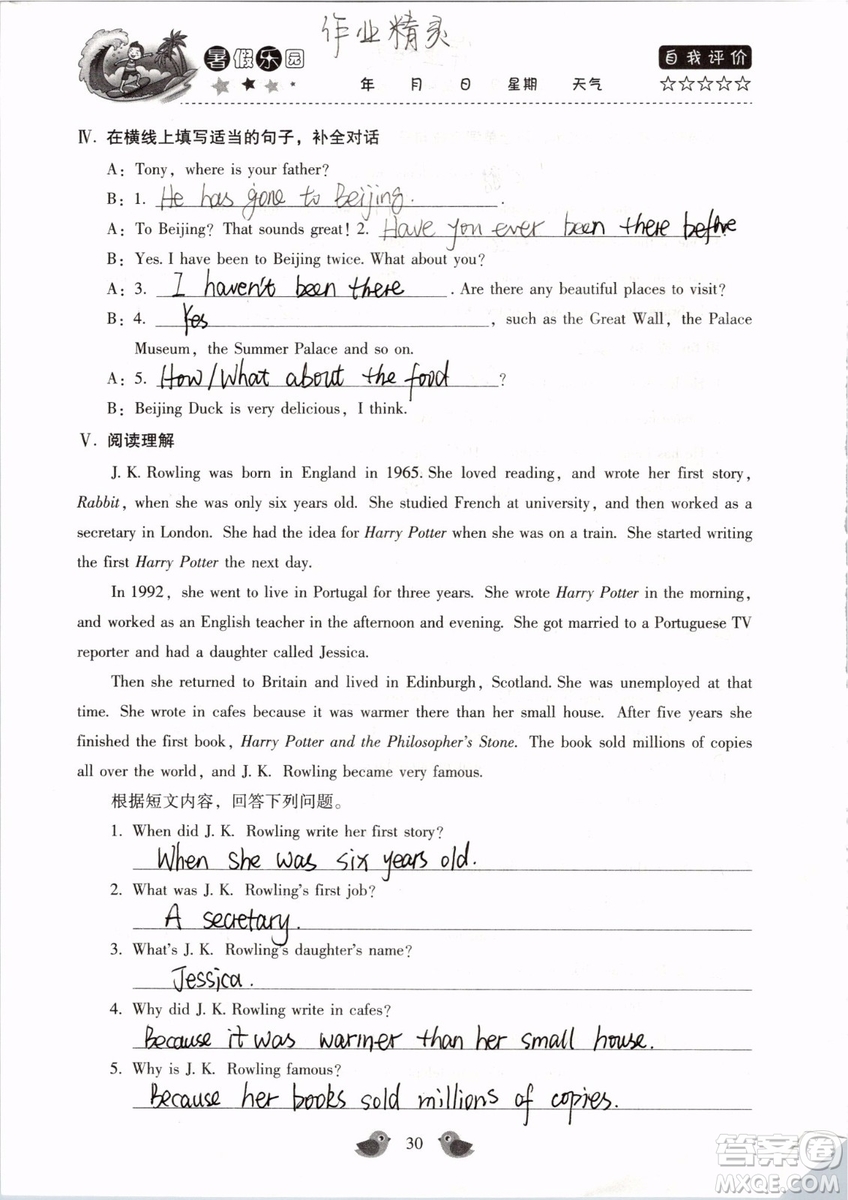 作业精灵
暑假乐园
自我评价
年 月 日 星期 天气 ☆☆☆☆☆
Ⅳ. 在横线上填写适当的句子，补全对话
A: Tony, where is your father?
B: 1. He has gone to Beijing.
A: To Beijing? That sounds great! 2. Have you ever been there before
B: Yes. I have been to Beijing twice. What about you?
A: 3. I haven't been there. Are there any beautiful places to visit?
B: 4. Yes, such as the Great Wall, the Palace
Museum, the Summer Palace and so on.
A: 5. How/What about the food?
B: Beijing Duck is very delicious, I think.
Ⅴ. 阅读理解
J. K. Rowling was born in England in 1965. She loved reading, and wrote her first story,
Rabbit, when she was only six years old. She studied French at university, and then worked as a
secretary in London. She had the idea for Harry Potter when she was on a train. She started writing
the first Harry Potter the next day.
In 1992, she went to live in Portugal for three years. She wrote Harry Potter in the morning,
and worked as an English teacher in the afternoon and evening. She got married to a Portuguese TV
reporter and had a daughter called Jessica.
Then she returned to Britain and lived in Edinburgh, Scotland. She was unemployed at that
time. She wrote in cafes because it was warmer there than her small house. After five years she
finished the first book, Harry Potter and the Philosopher's Stone. The book sold millions of copies
all over the world, and J. K. Rowling became very famous.
根据短文内容，回答下列问题。
1. When did J. K. Rowling write her first story?
When she was six years old.
2. What was J. K. Rowling's first job?
A secretary.
3. What's J. K. Rowling's daughter's name?
Jessica.
4. Why did J. K. Rowling write in cafes?
Because it was warmer than her small house.
5. Why is J. K. Rowling famous?
Because her books sold millions of copies.
30
答案圈
MXQE.COM